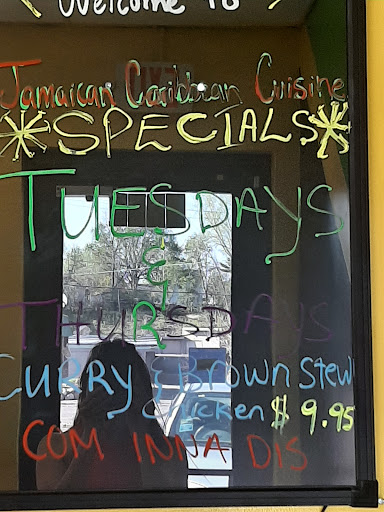 Welcome To
Jamaican Caribbean Cuisine
*SPECIALS*
TUESDAYS
&
THURSDAYS
CURRY & BROWN Stew
Chicken $ 9.95
COM INNA DIS